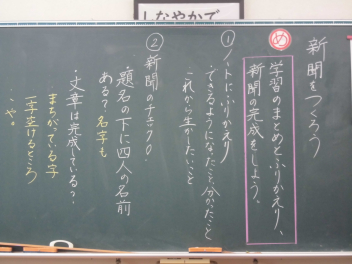 しなやかで
新聞をつくろう
め
学習のまとめとふりかえり、
新聞の完成をしよう。
① ノートにふりかえり
・できるようになったこと分かったこと
これから生かしたいこと
② 新聞のチェック。
・題名の下に四人の名前
ある？名字も
・文章は完成している？
まちがっている字
一字空けるところ
、や。